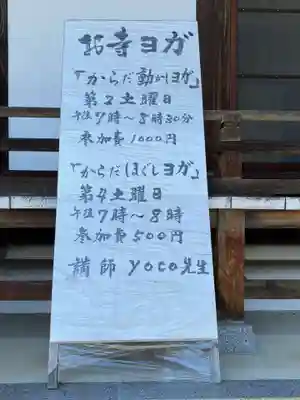 お寺ヨガ
「からだ動かヨガ」
第2土曜日
午後7時〜8時30分
参加費1000円
「からだほぐしヨガ」
第4土曜日
午後7時〜8時
参加費500円
講師 yoco先生